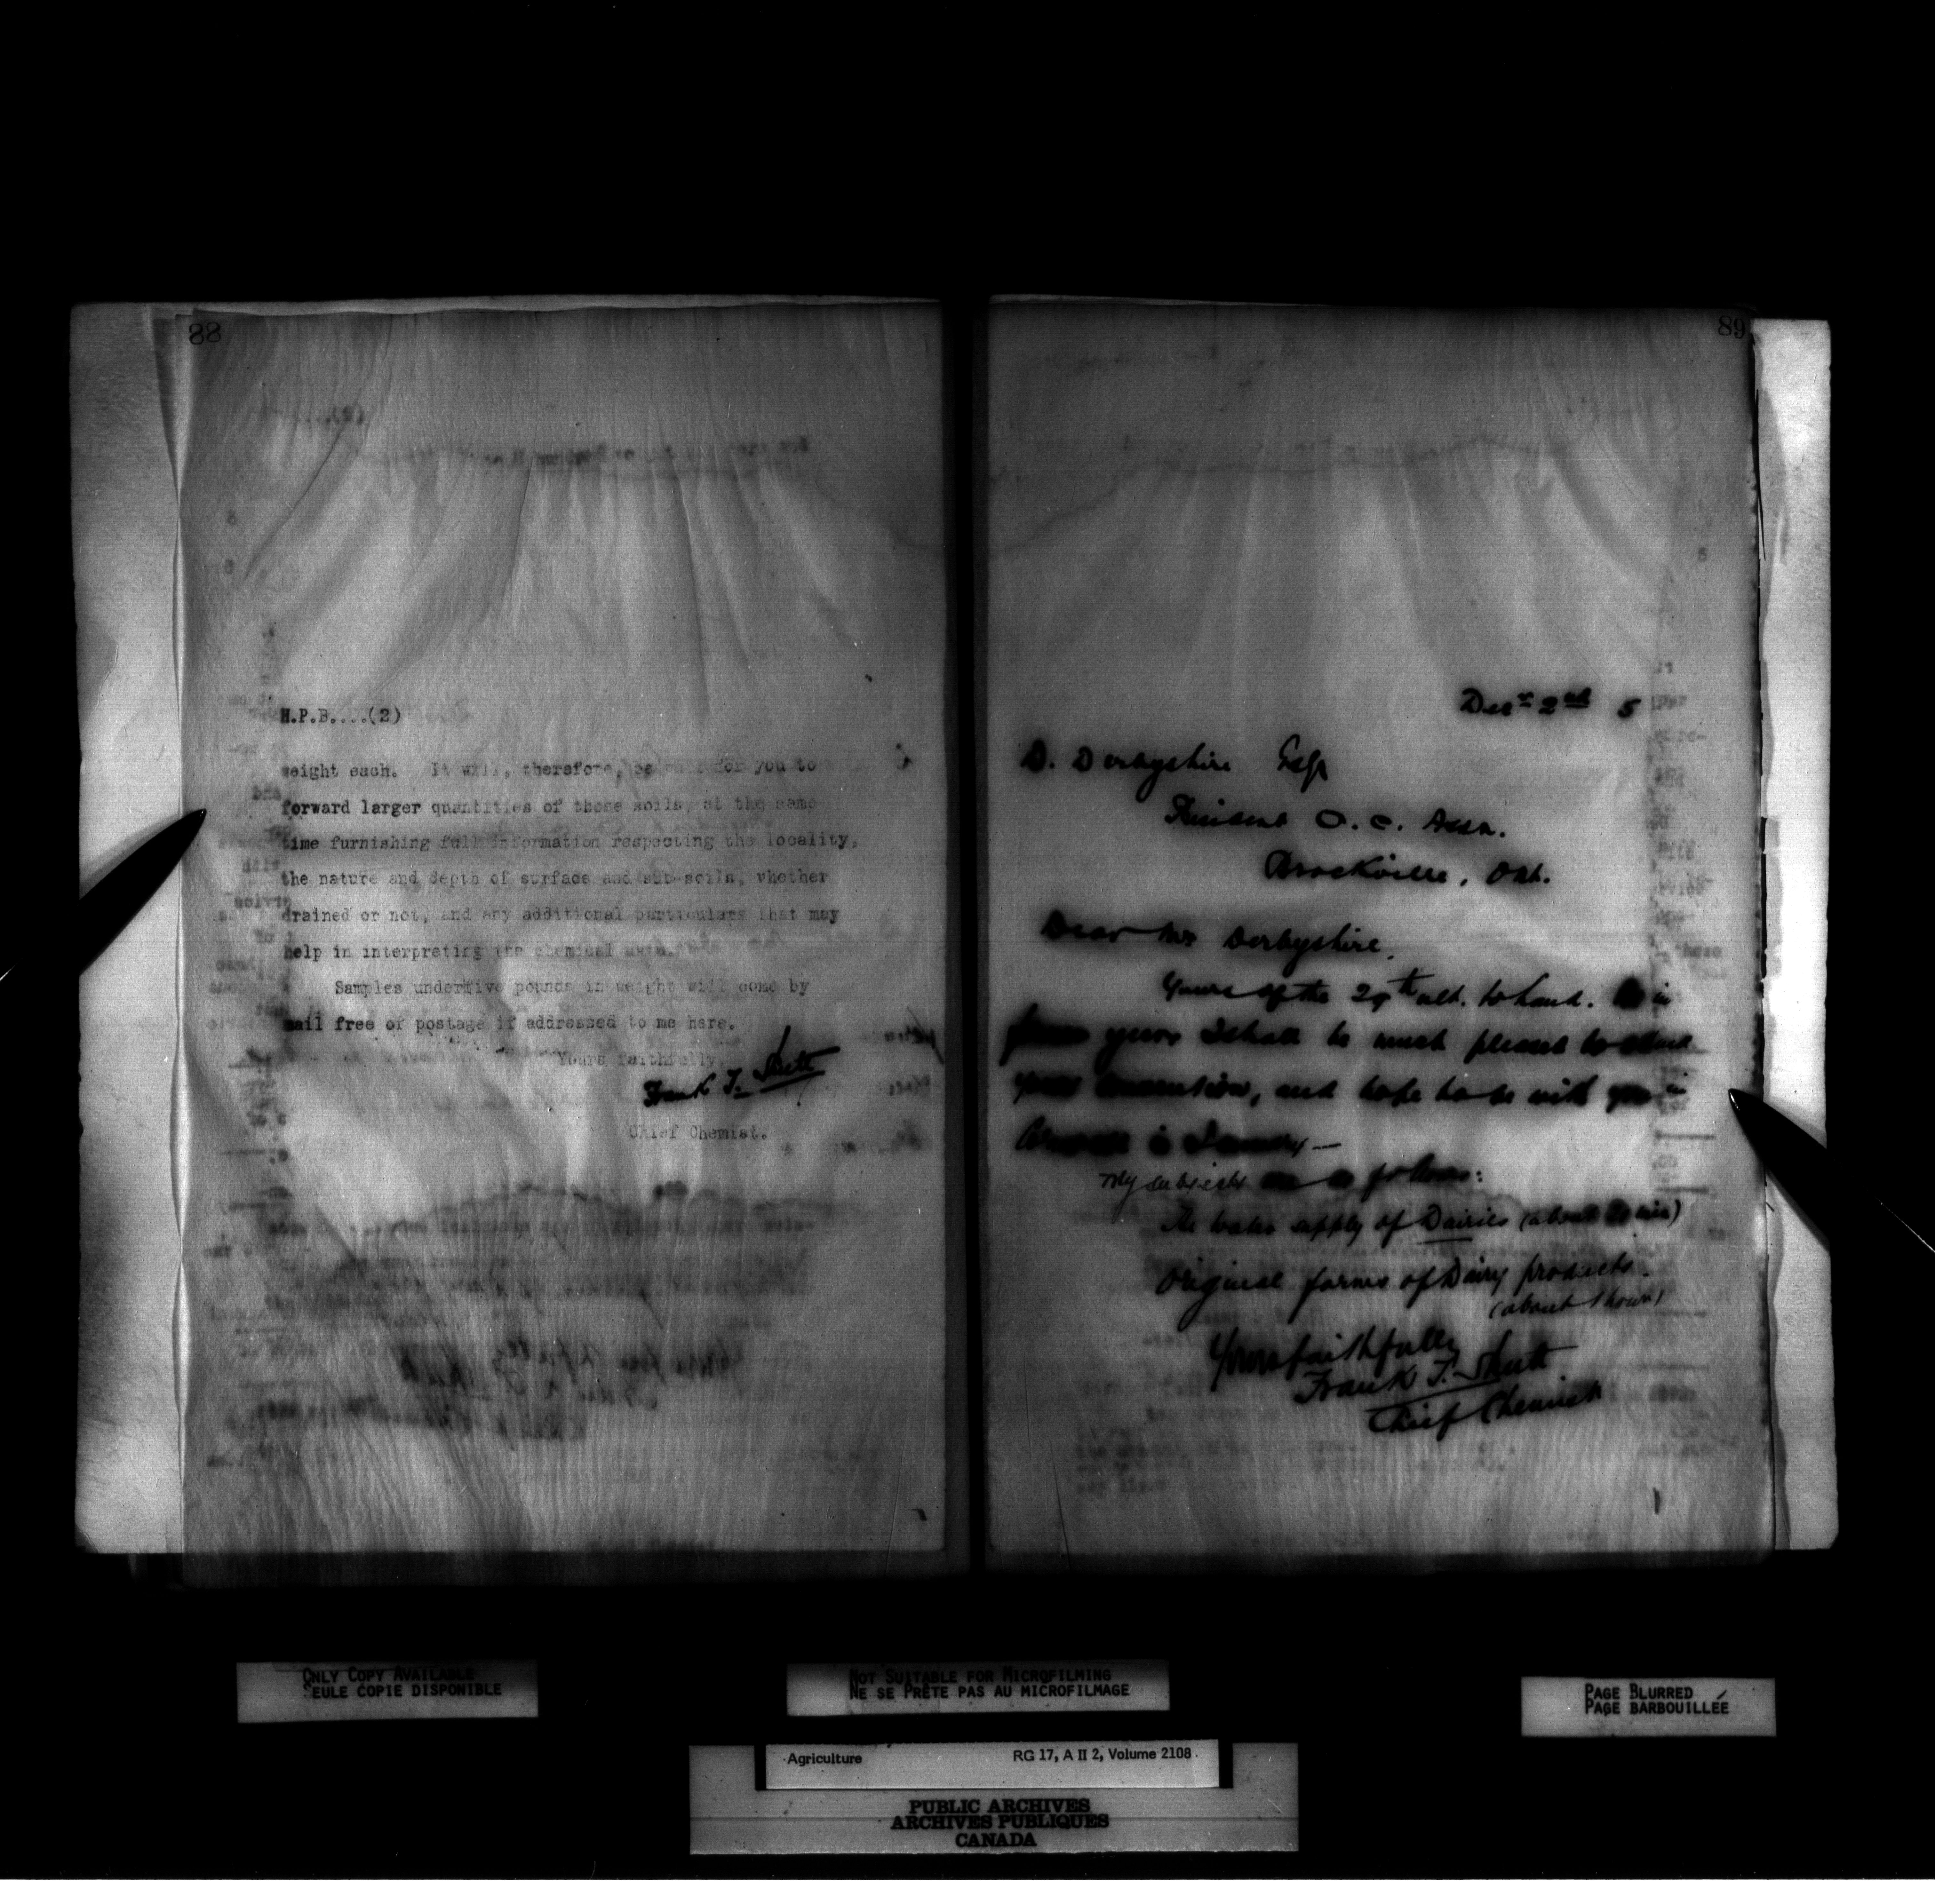 88
H.P.B....(2)
weight each. It will, therefore, be well for you to
forward larger quantities of these soils, at the same
time furnishing full information respecting the locality,
the nature and depth of surface and sub-soils, whether
drained or not, and any additional particulars that may
help in interpreting the chemical data.
Samples under five pounds in weight will come by
mail free of postage if addressed to me here.
Yours faithfully,
Frank T. Shutt
Chief Chemist.
89
Decr 2nd 5
D. Derbyshire Esq
President O. C. Assn.
Brockville, Ont.
Dear Mr Derbyshire,
Yours of the 29th ult. to hand. As in
years I shall be much pleased to attend
your convention, and hope to be with you in
in January —
My subjects are as follows:
The water supply of Dairies (about min)
Original forms of Dairy products.
(about 1 hour)
Yours faithfully
Frank T. Shutt
Chief Chemist
ONLY COPY AVAILABLE
SEULE COPIE DISPONIBLE
NOT SUITABLE FOR MICROFILMING
NE SE PRÊTE PAS AU MICROFILMAGE
PAGE BLURRED
PAGE BARBOUILLÉE
Agriculture RG 17, A II 2, Volume 2108
PUBLIC ARCHIVES
ARCHIVES PUBLIQUES
CANADA